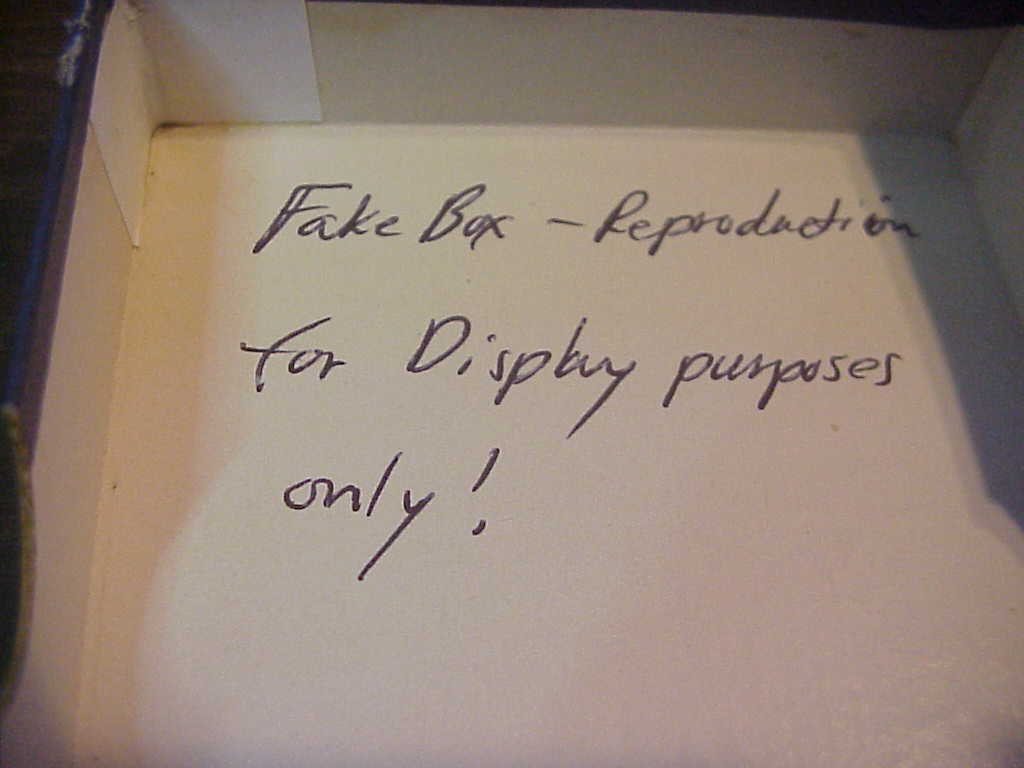 Fake Box - Reproduction
for Display purposes
only!